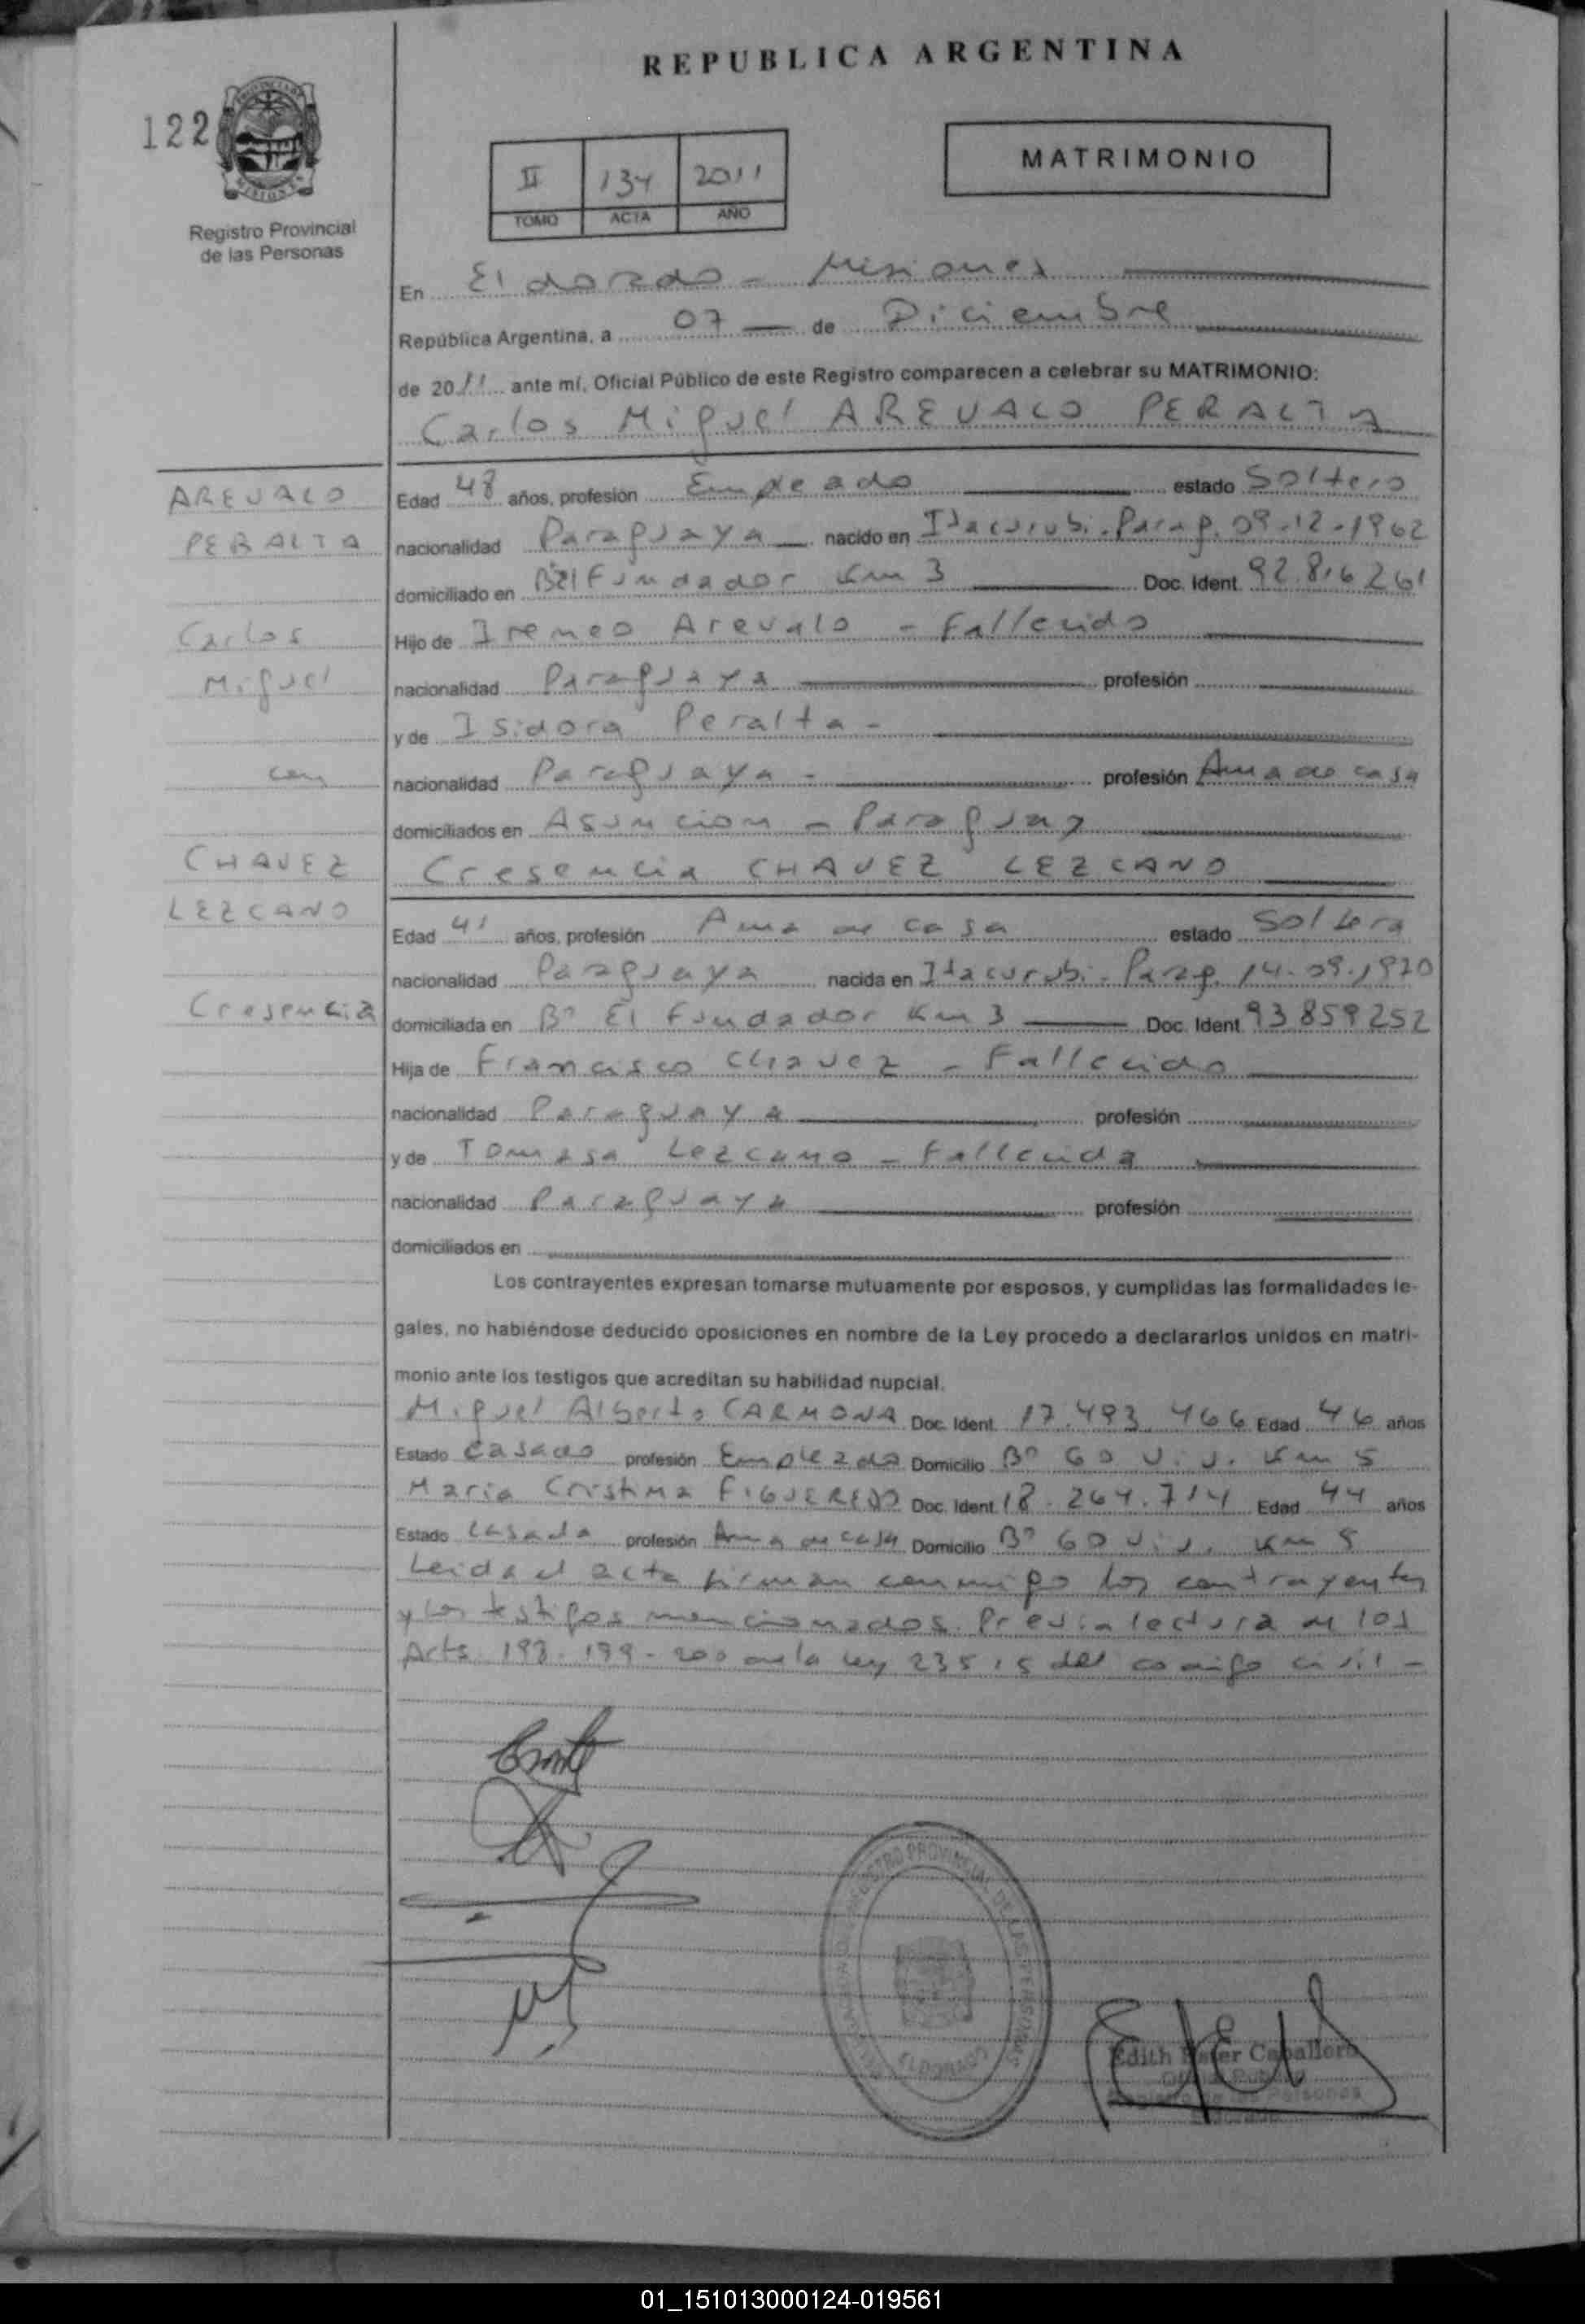 REPUBLICA ARGENTINA
122
MATRIMONIO
II 134 2011
TOMO ACTA AÑO
Registro Provincial
de las Personas
En Eldorado - Misiones
República Argentina, a 07 de Diciembre
de 2011 ante mí, Oficial Público de este Registro comparecen a celebrar su MATRIMONIO:
Carlos Miguel AREVALO PERALTA
AREVALO
PERALTA
Carlos
Miguel
con
CHAVEZ
LEZCANO
Cresencia
Edad 48 años, profesión Empleado estado Soltero
nacionalidad Paraguaya nacido en Itacurubi - Parag. 09-12-1962
domiciliado en Bº El Fundador Km 3 Doc. Ident. 92.816.261
Hijo de Ireneo Arevalo - Fallecido
nacionalidad Paraguaya profesión
y de Isidora Peralta -
nacionalidad Paraguaya - profesión Ama de casa
domiciliados en Asuncion - Paraguay
Cresencia CHAVEZ LEZCANO
Edad 41 años, profesión Ama de casa estado Soltera
nacionalidad Paraguaya nacida en Itacurubi - Parag. 14-09-1970
domiciliada en Bº El Fundador Km 3 Doc. Ident 93.859252
Hija de Francisco Chavez - Fallecido
nacionalidad Paraguaya profesión
y de Tomasa Lezcano - Fallecida
nacionalidad Paraguaya profesión
domiciliados en
Los contrayentes expresan tomarse mutuamente por esposos, y cumplidas las formalidades le-
gales, no habiéndose deducido oposiciones en nombre de la Ley procedo a declararlos unidos en matri-
monio ante los testigos que acreditan su habilidad nupcial.
Miguel Alberto CARMONA Doc. Ident. 17.493.466 Edad 46 años
Estado Casado profesión Empleado Domicilio Bº 60 V.V. Km 5
Maria Cristina FIGUEREDO Doc. Ident. 18.264.714 Edad 44 años
Estado Casada profesión Ama de casa Domicilio Bº 60 V.V. Km 5
Leida el acta firman conmigo los contrayentes
y los testigos mencionados. Previa lectura de los
Arts. 198-199-200 de la ley 23515 del codigo civil -
REGISTRO PROVINCIAL DE LAS PERSONAS
ELDORADO
Edith Ester Caballero
Oficial Público
Registro de las Personas
Eldorado
01_151013000124-019561